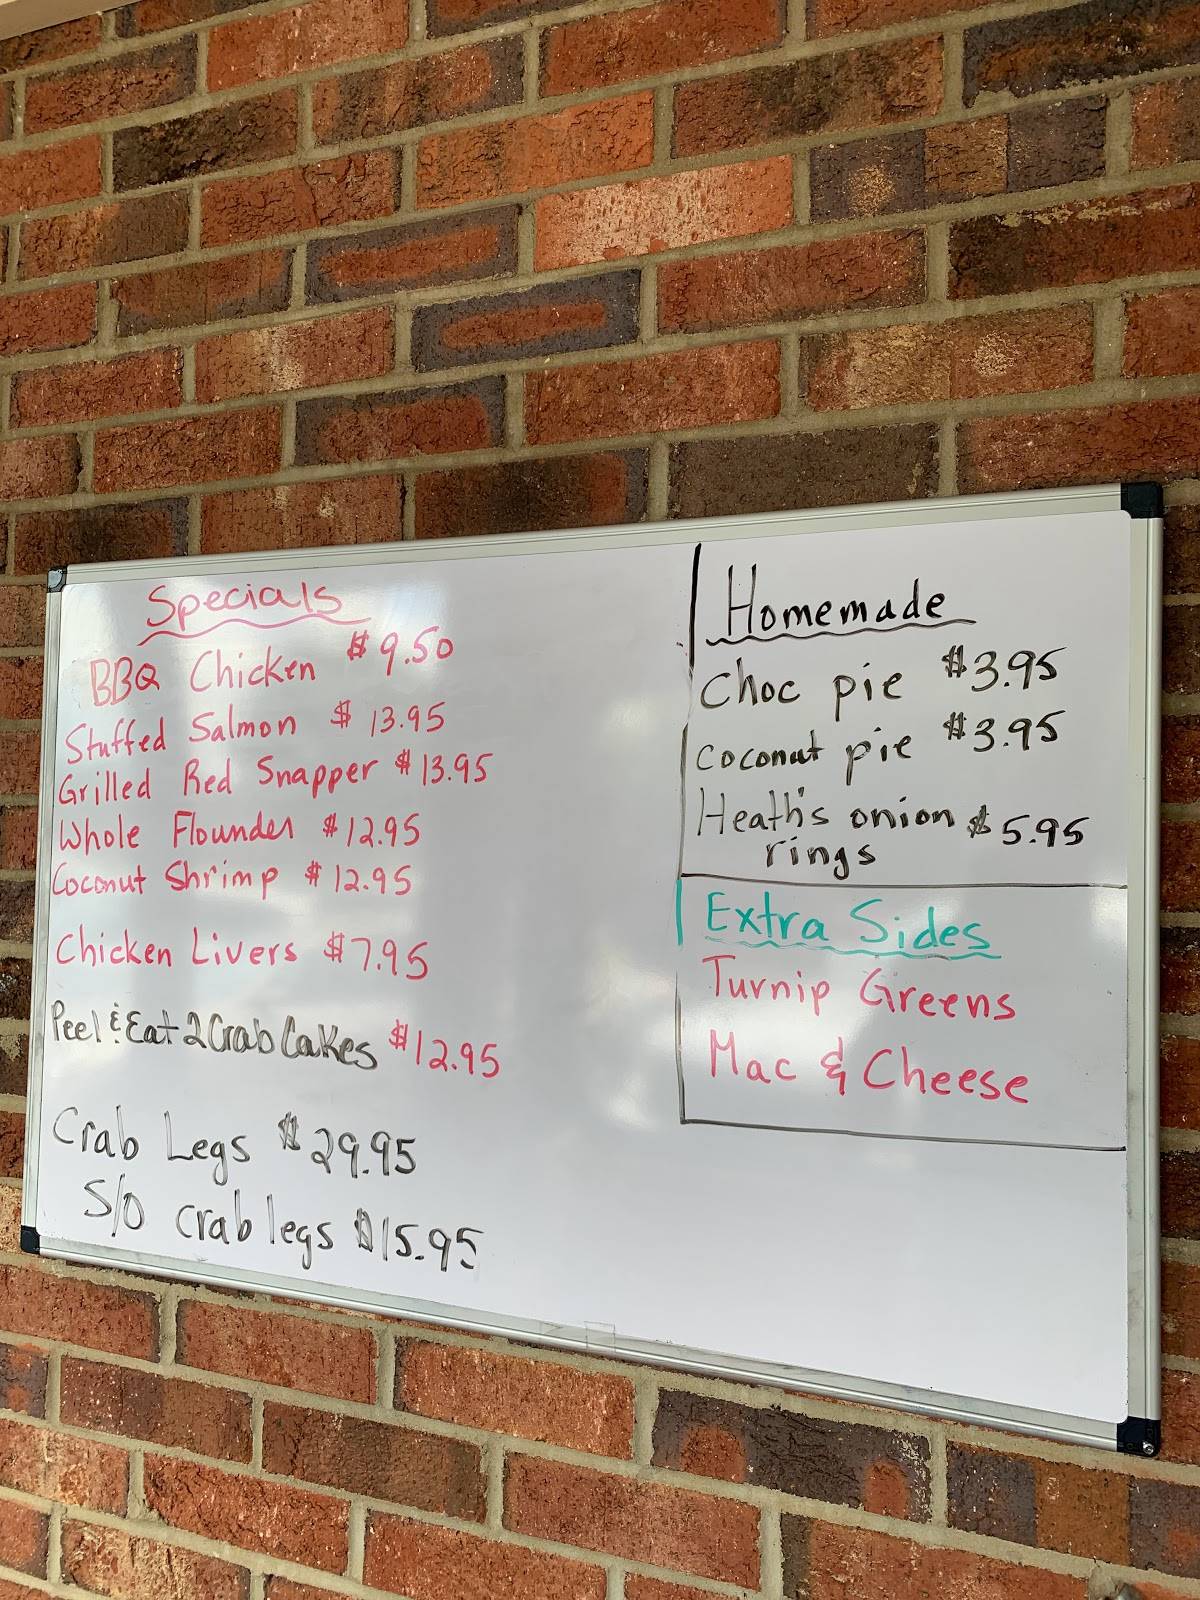 Specials
BBQ Chicken $9.50
Stuffed Salmon $13.95
Grilled Red Snapper $13.95
Whole Flounder $12.95
Coconut Shrimp $12.95
Chicken Livers $7.95
Peel & Eat 2 Crab Cakes $12.95
Crab Legs $29.95
S/O crab legs $15.95
Homemade
Choc pie $3.95
coconut pie $3.95
Heath's onion $5.95
rings
Extra Sides
Turnip Greens
Mac & Cheese